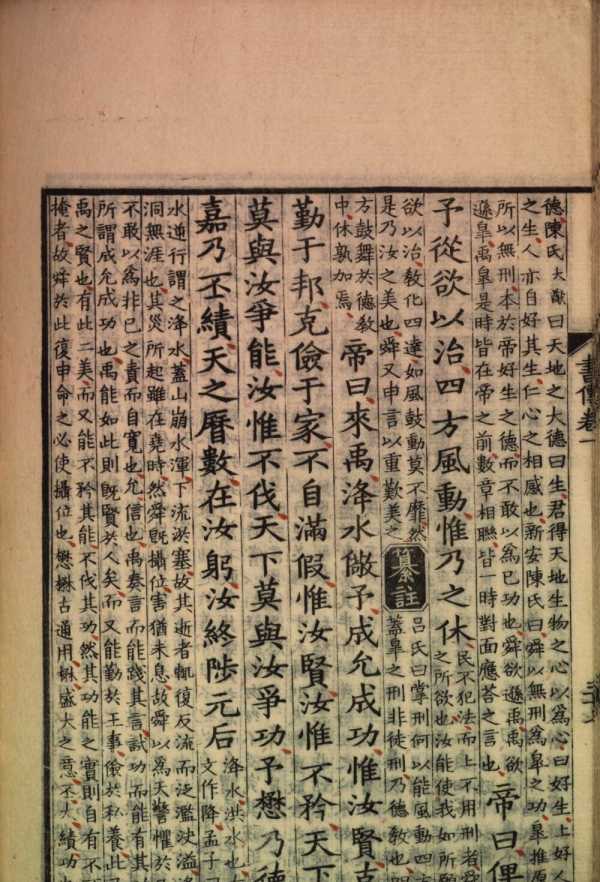 書傳卷一
德陳氏大猷曰天地之大德曰生君得天地生物之心以為心曰好生上好人
之生人亦自好其生仁心之相感也新安陳氏曰舜以無刑為皐之功皐推原
所以無刑本於帝好生之德而不敢以為已功也舜欲遜禹禹欲
遜皐禹皐是時皆在帝之前數章相聯皆一時對面應答之言也
帝曰俾
予從欲以治四方風動惟乃之休
民不犯法而上不用刑者舜
之所欲也汝能使我如所願
欲以治教化四達如風鼓動莫不靡然
是乃汝之美也舜又申言以重歎美之
纂註
呂氏曰掌刑何以能風動四方
蓋皐之刑非徒刑乃德教也
方鼓舞於德教
中休孰加焉
帝曰來禹洚水儆予成允成功惟汝賢克
勤于邦克儉于家不自滿假惟汝賢汝惟不矜天下
莫與汝爭能汝惟不伐天下莫與汝爭功予懋乃德
嘉乃丕績天之曆數在汝躬汝終陟元后
洚水洪水也古
文作降孟子曰
水逆行謂之洚水蓋山崩水渾下流淤塞故其逝者輒復反流而泛濫決溢
洞無涯也其災所起雖在堯時然舜既攝位害猶未息故舜以為天警懼於
不敢以為非已之責而自寬也允信也禹奏言而能踐其言試功而能有其
所謂成允成功也禹能如此則既賢於人矣而又能勤於王事儉於私養此
禹之賢也有此二美而又能不矜其能不伐其功然其功能之實則自有不
掩者故舜於此復申命之必使攝位也懋楙古通用楙盛大之意丕大績功